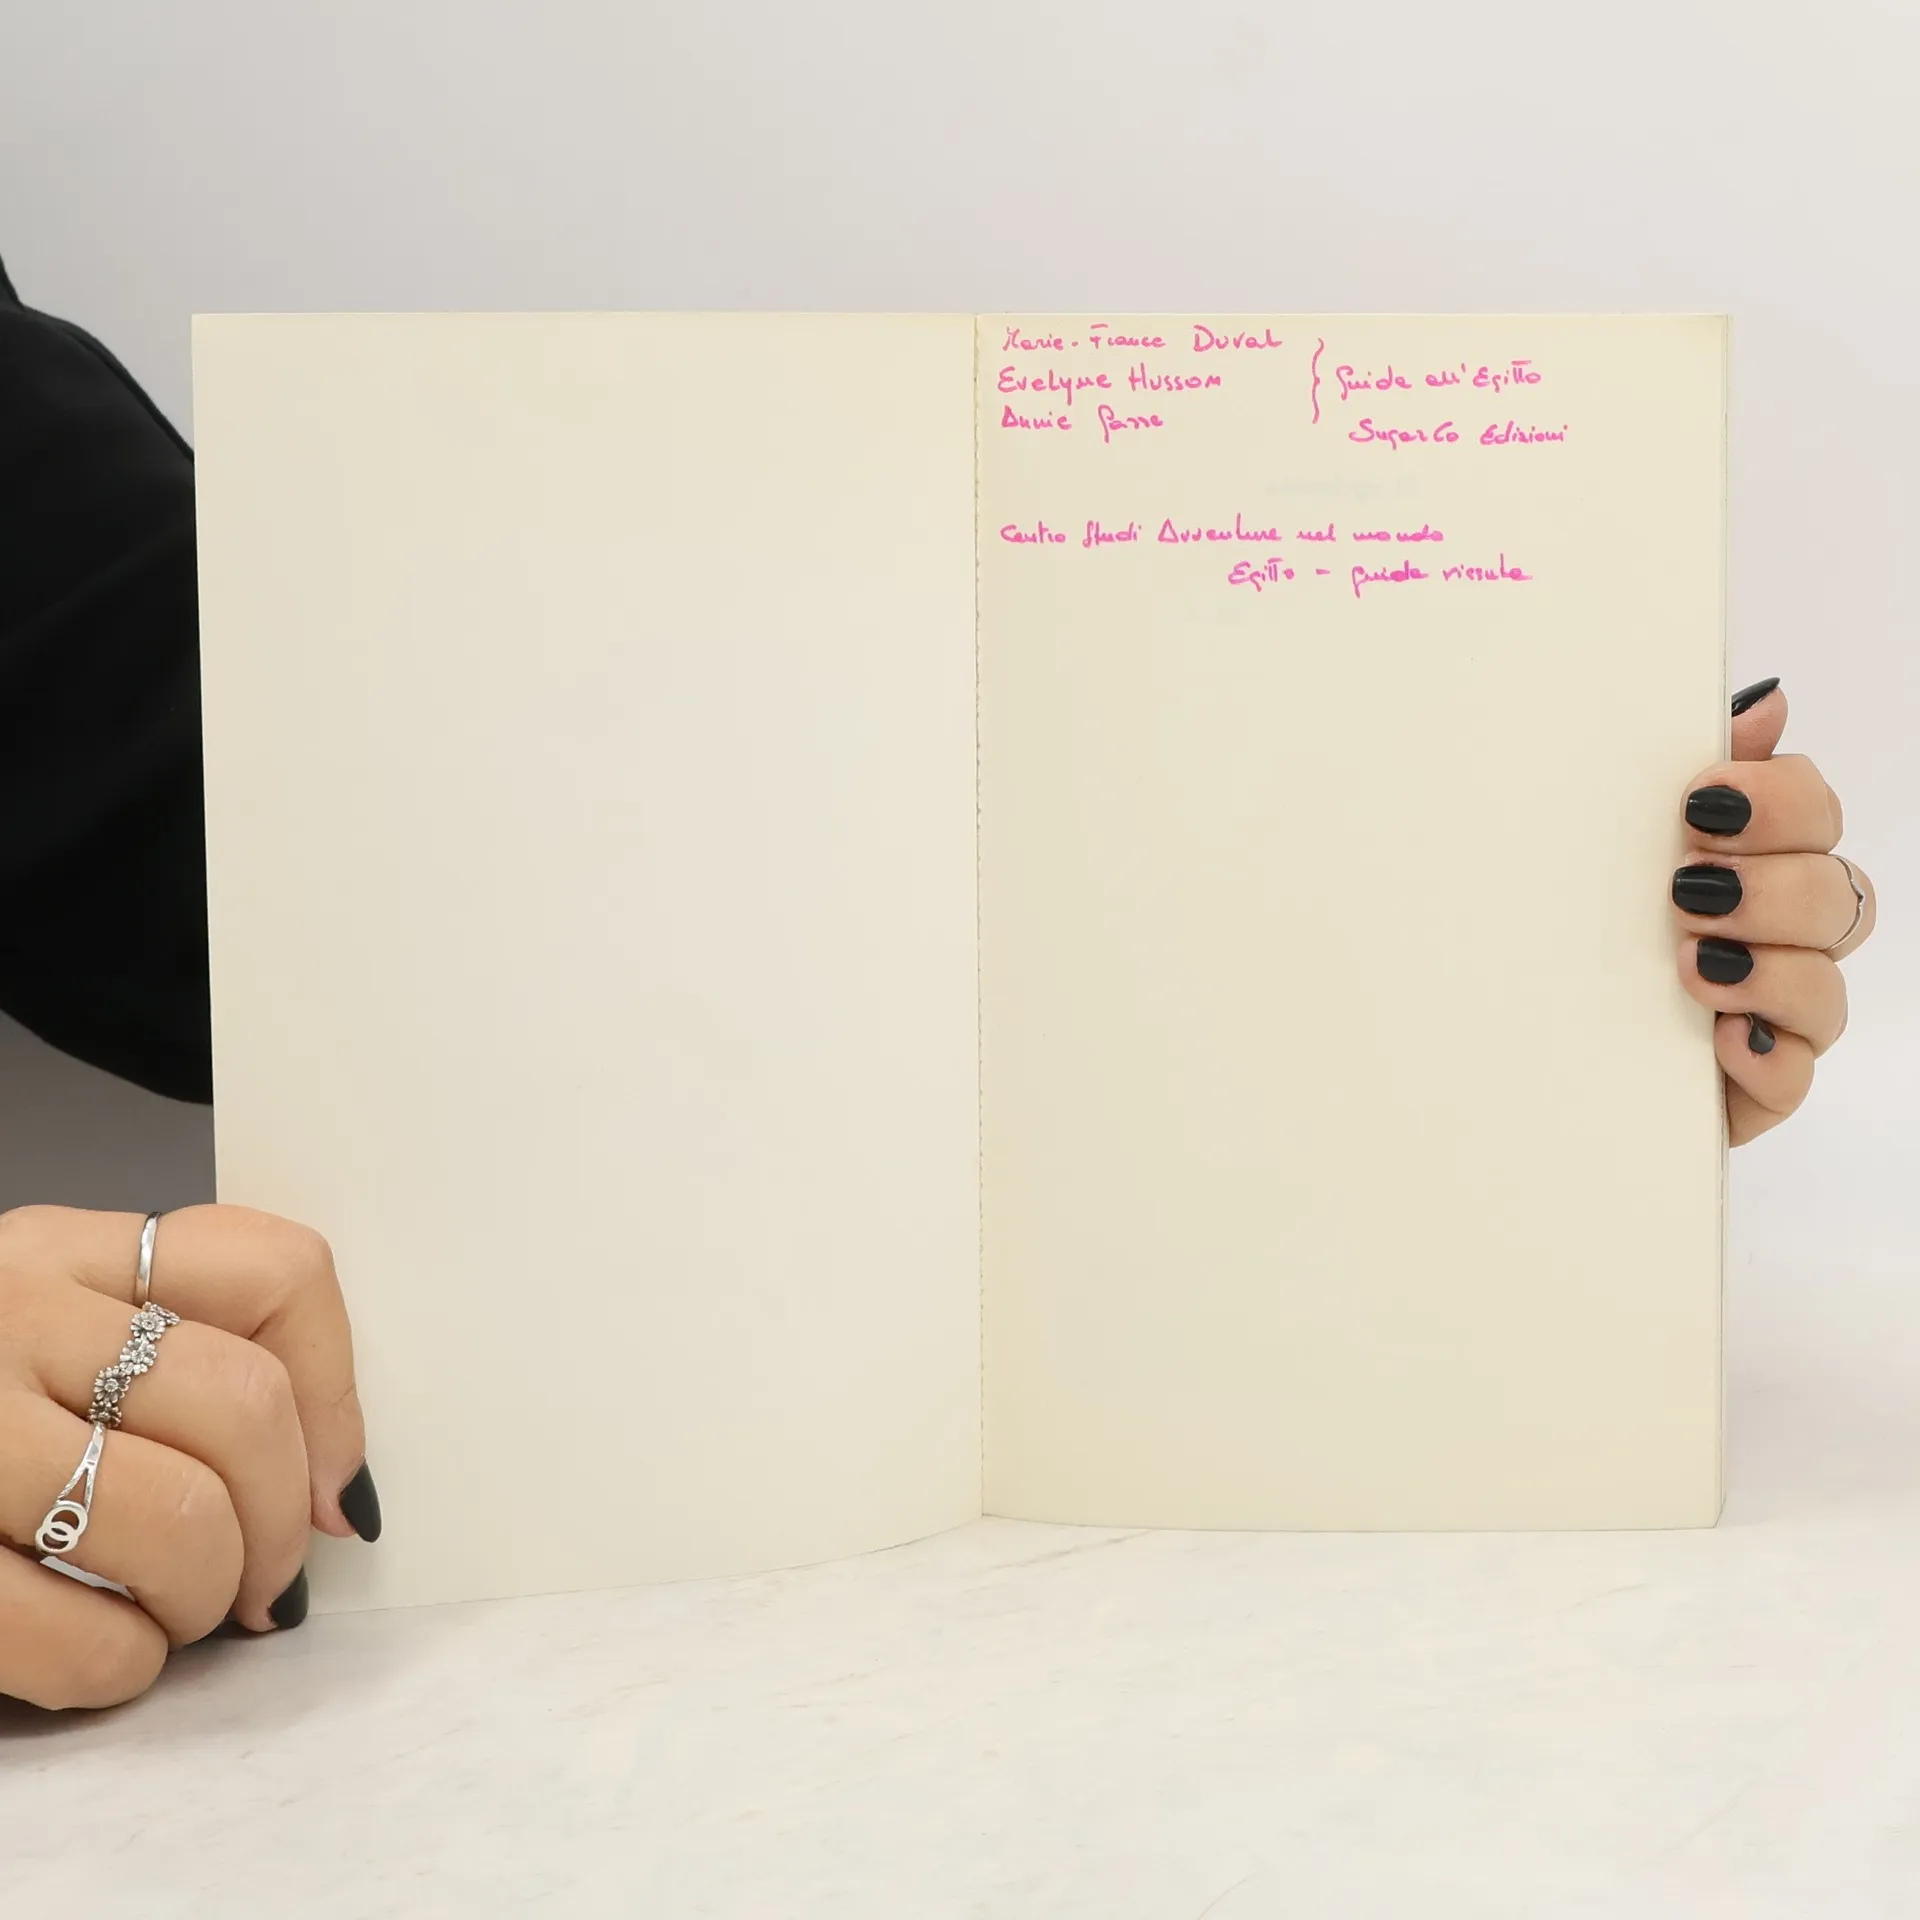 Marie-France Duval
Evelyne Husson
Annie
} Guida all'Egitto
SugarCo Edizioni
Centro Studi Avventure nel mondo
Egitto - guida vissuta